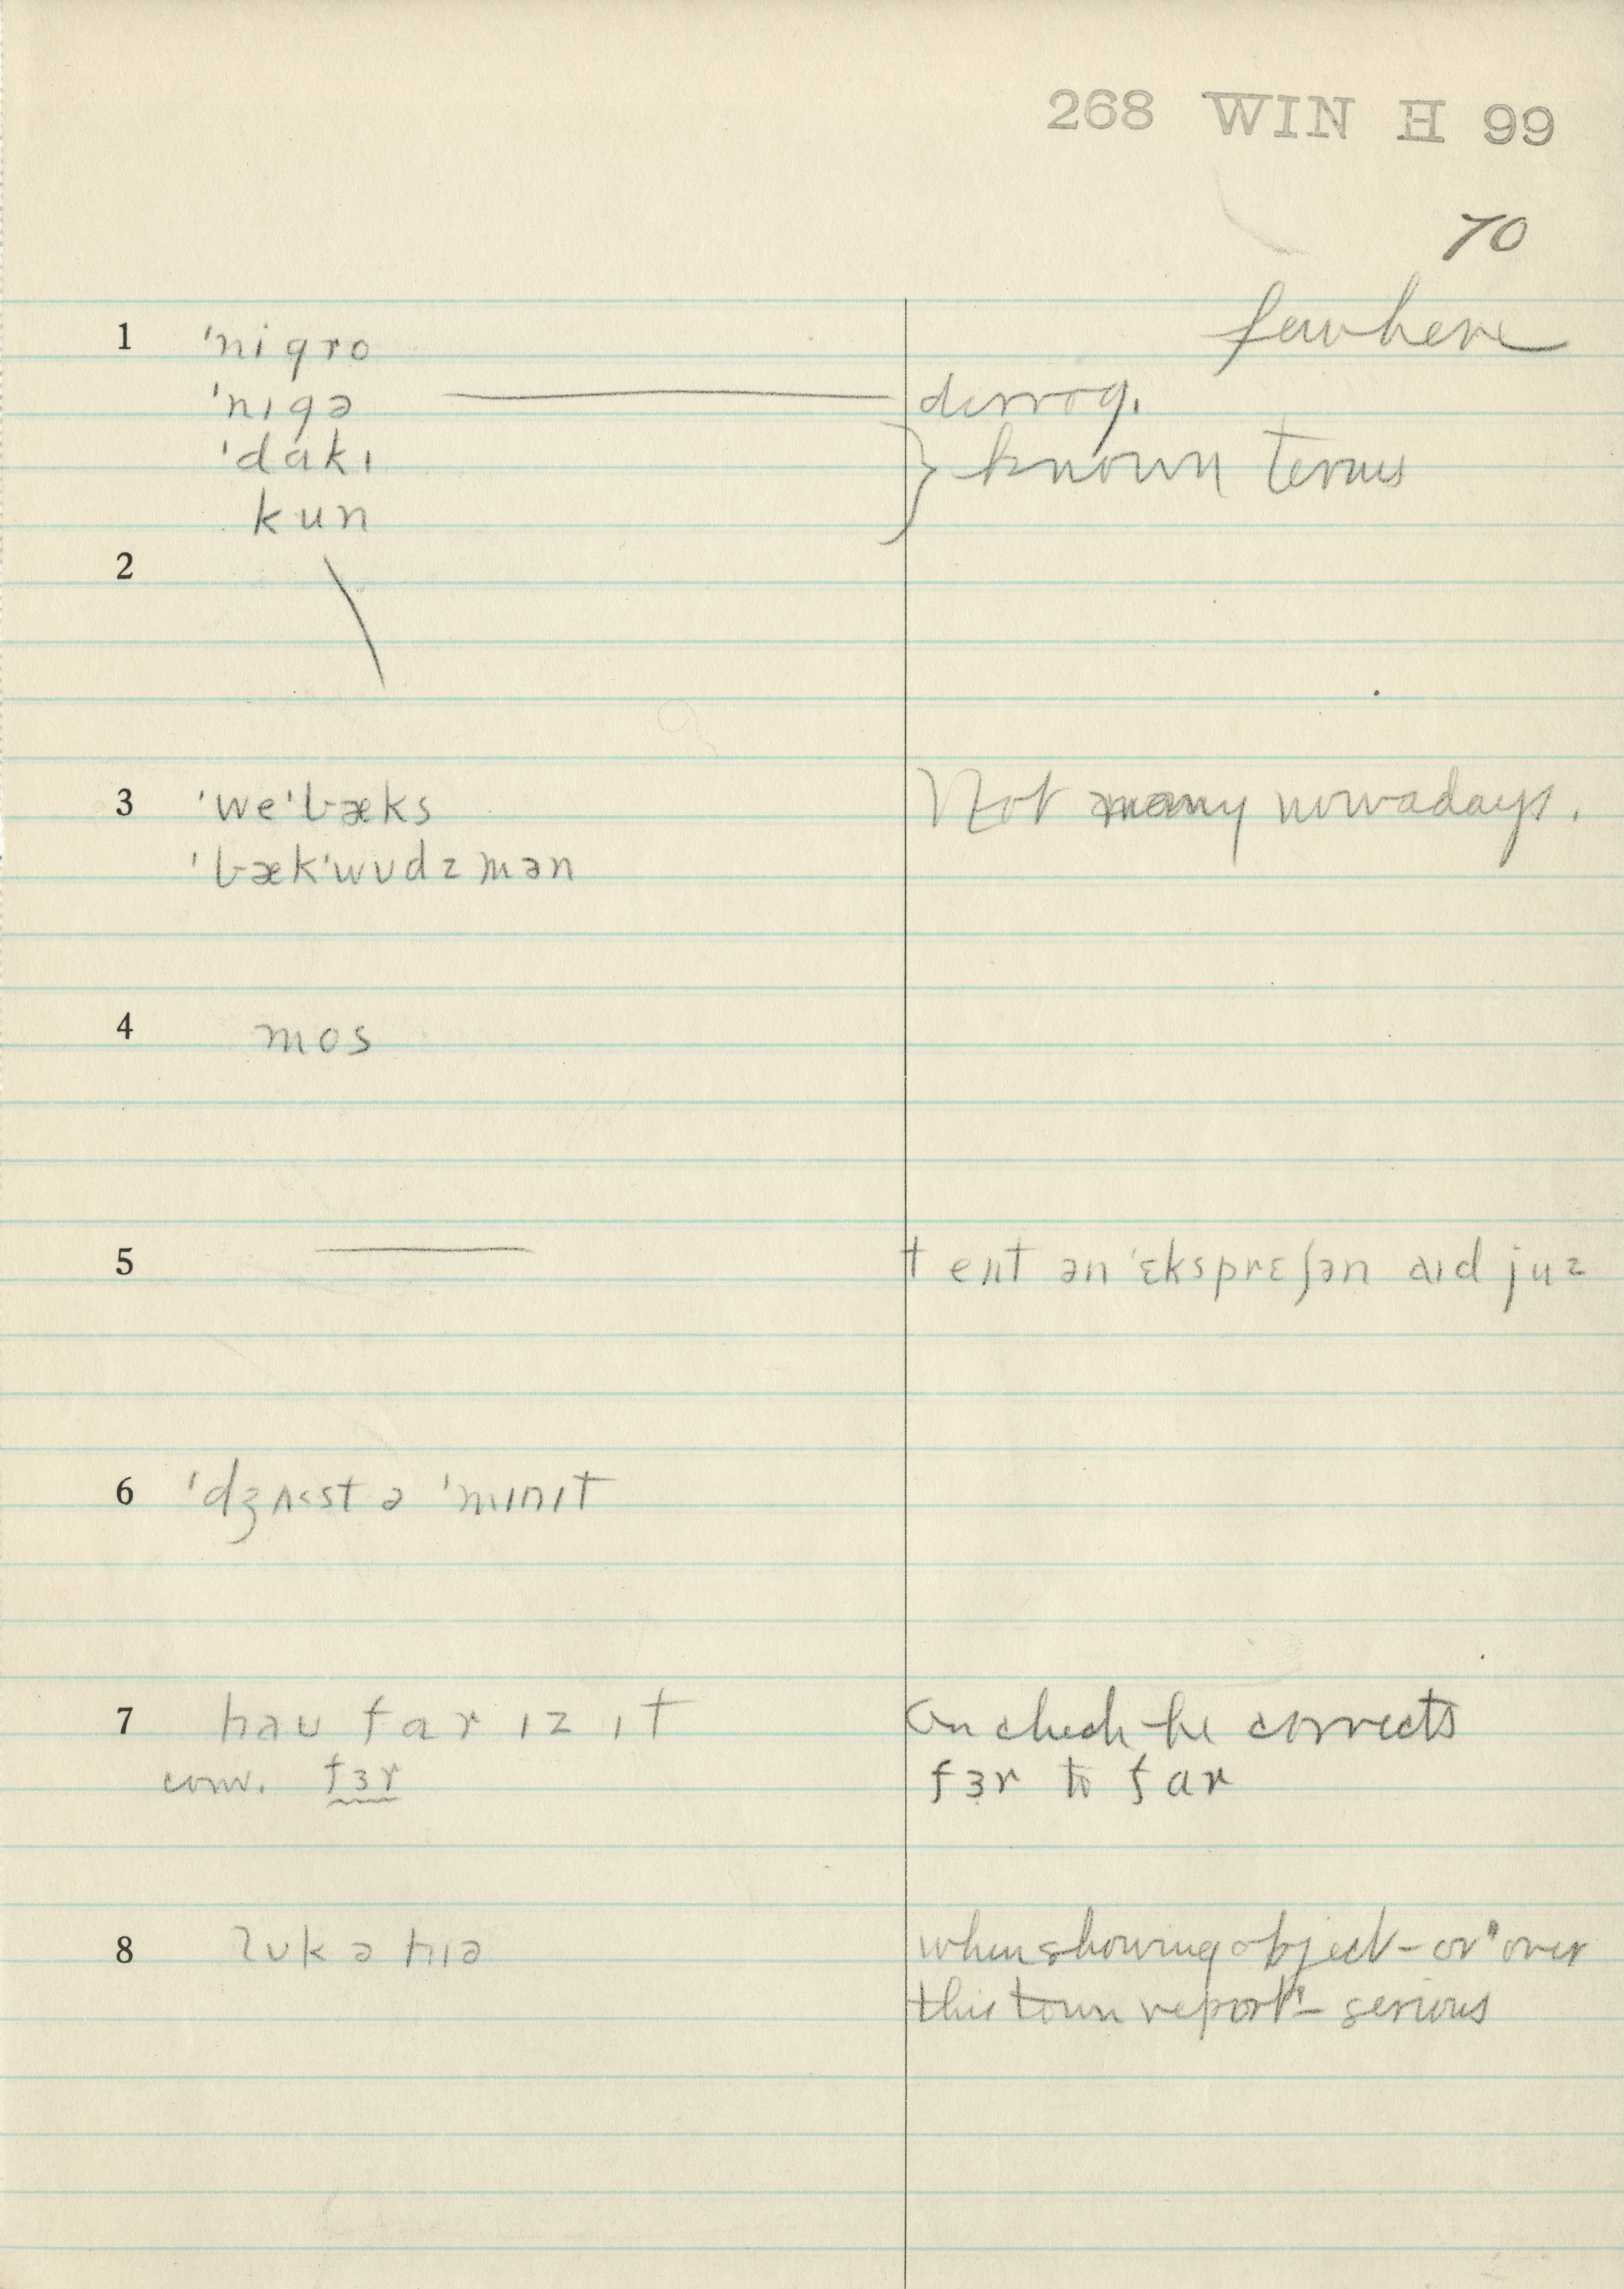 268 WIN H 99
70
few here
1 ˈnigro
ˈnɪgə derrog.
ˈdɑkɪ } known terms
kun
2
3 ˈweˈbæks Not many nowadays.
ˈbækˈwʊdzmən
4 mos
5 ən ˈɛksprɛʃən aɪd juz
6 ˈdʒʌ<st ə ˈmɪnɪt
7 haʊ far ɪz ɪt On check he corrects
conv. fɜr fɜr to far
8 lʊk ə hɪə when showing object – or "over
this town report" – serious